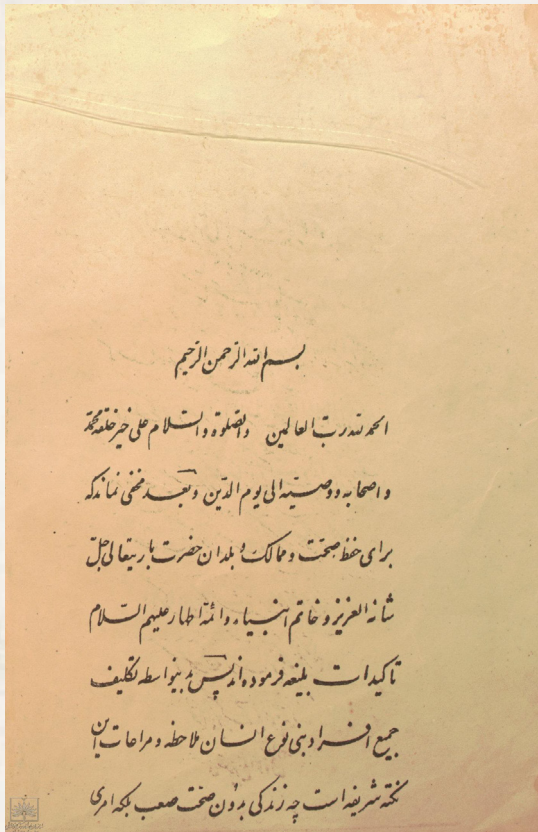 بسم الله الرحمن الرحیم
الحمد لله رب العالمین والصلوة والسلام علی خیر خلقه محمد
و اصحابه ووصیه الی یوم الدین وبعد مخفی نماند که
برای حفظ صحت وممالک و بلدان حضرت باریتعالی جل
شانه العزیز و خاتم انبیاء و ائمه اطهار علیهم السلام
تاکیدات بلیغه فرموده‌اند پس بدینواسطه تکلیف
جمیع افراد بنی نوع انسان ملاحظه و مراعات این
نکته شریفه است چه زندگی بدون صحت صعب بلکه امری